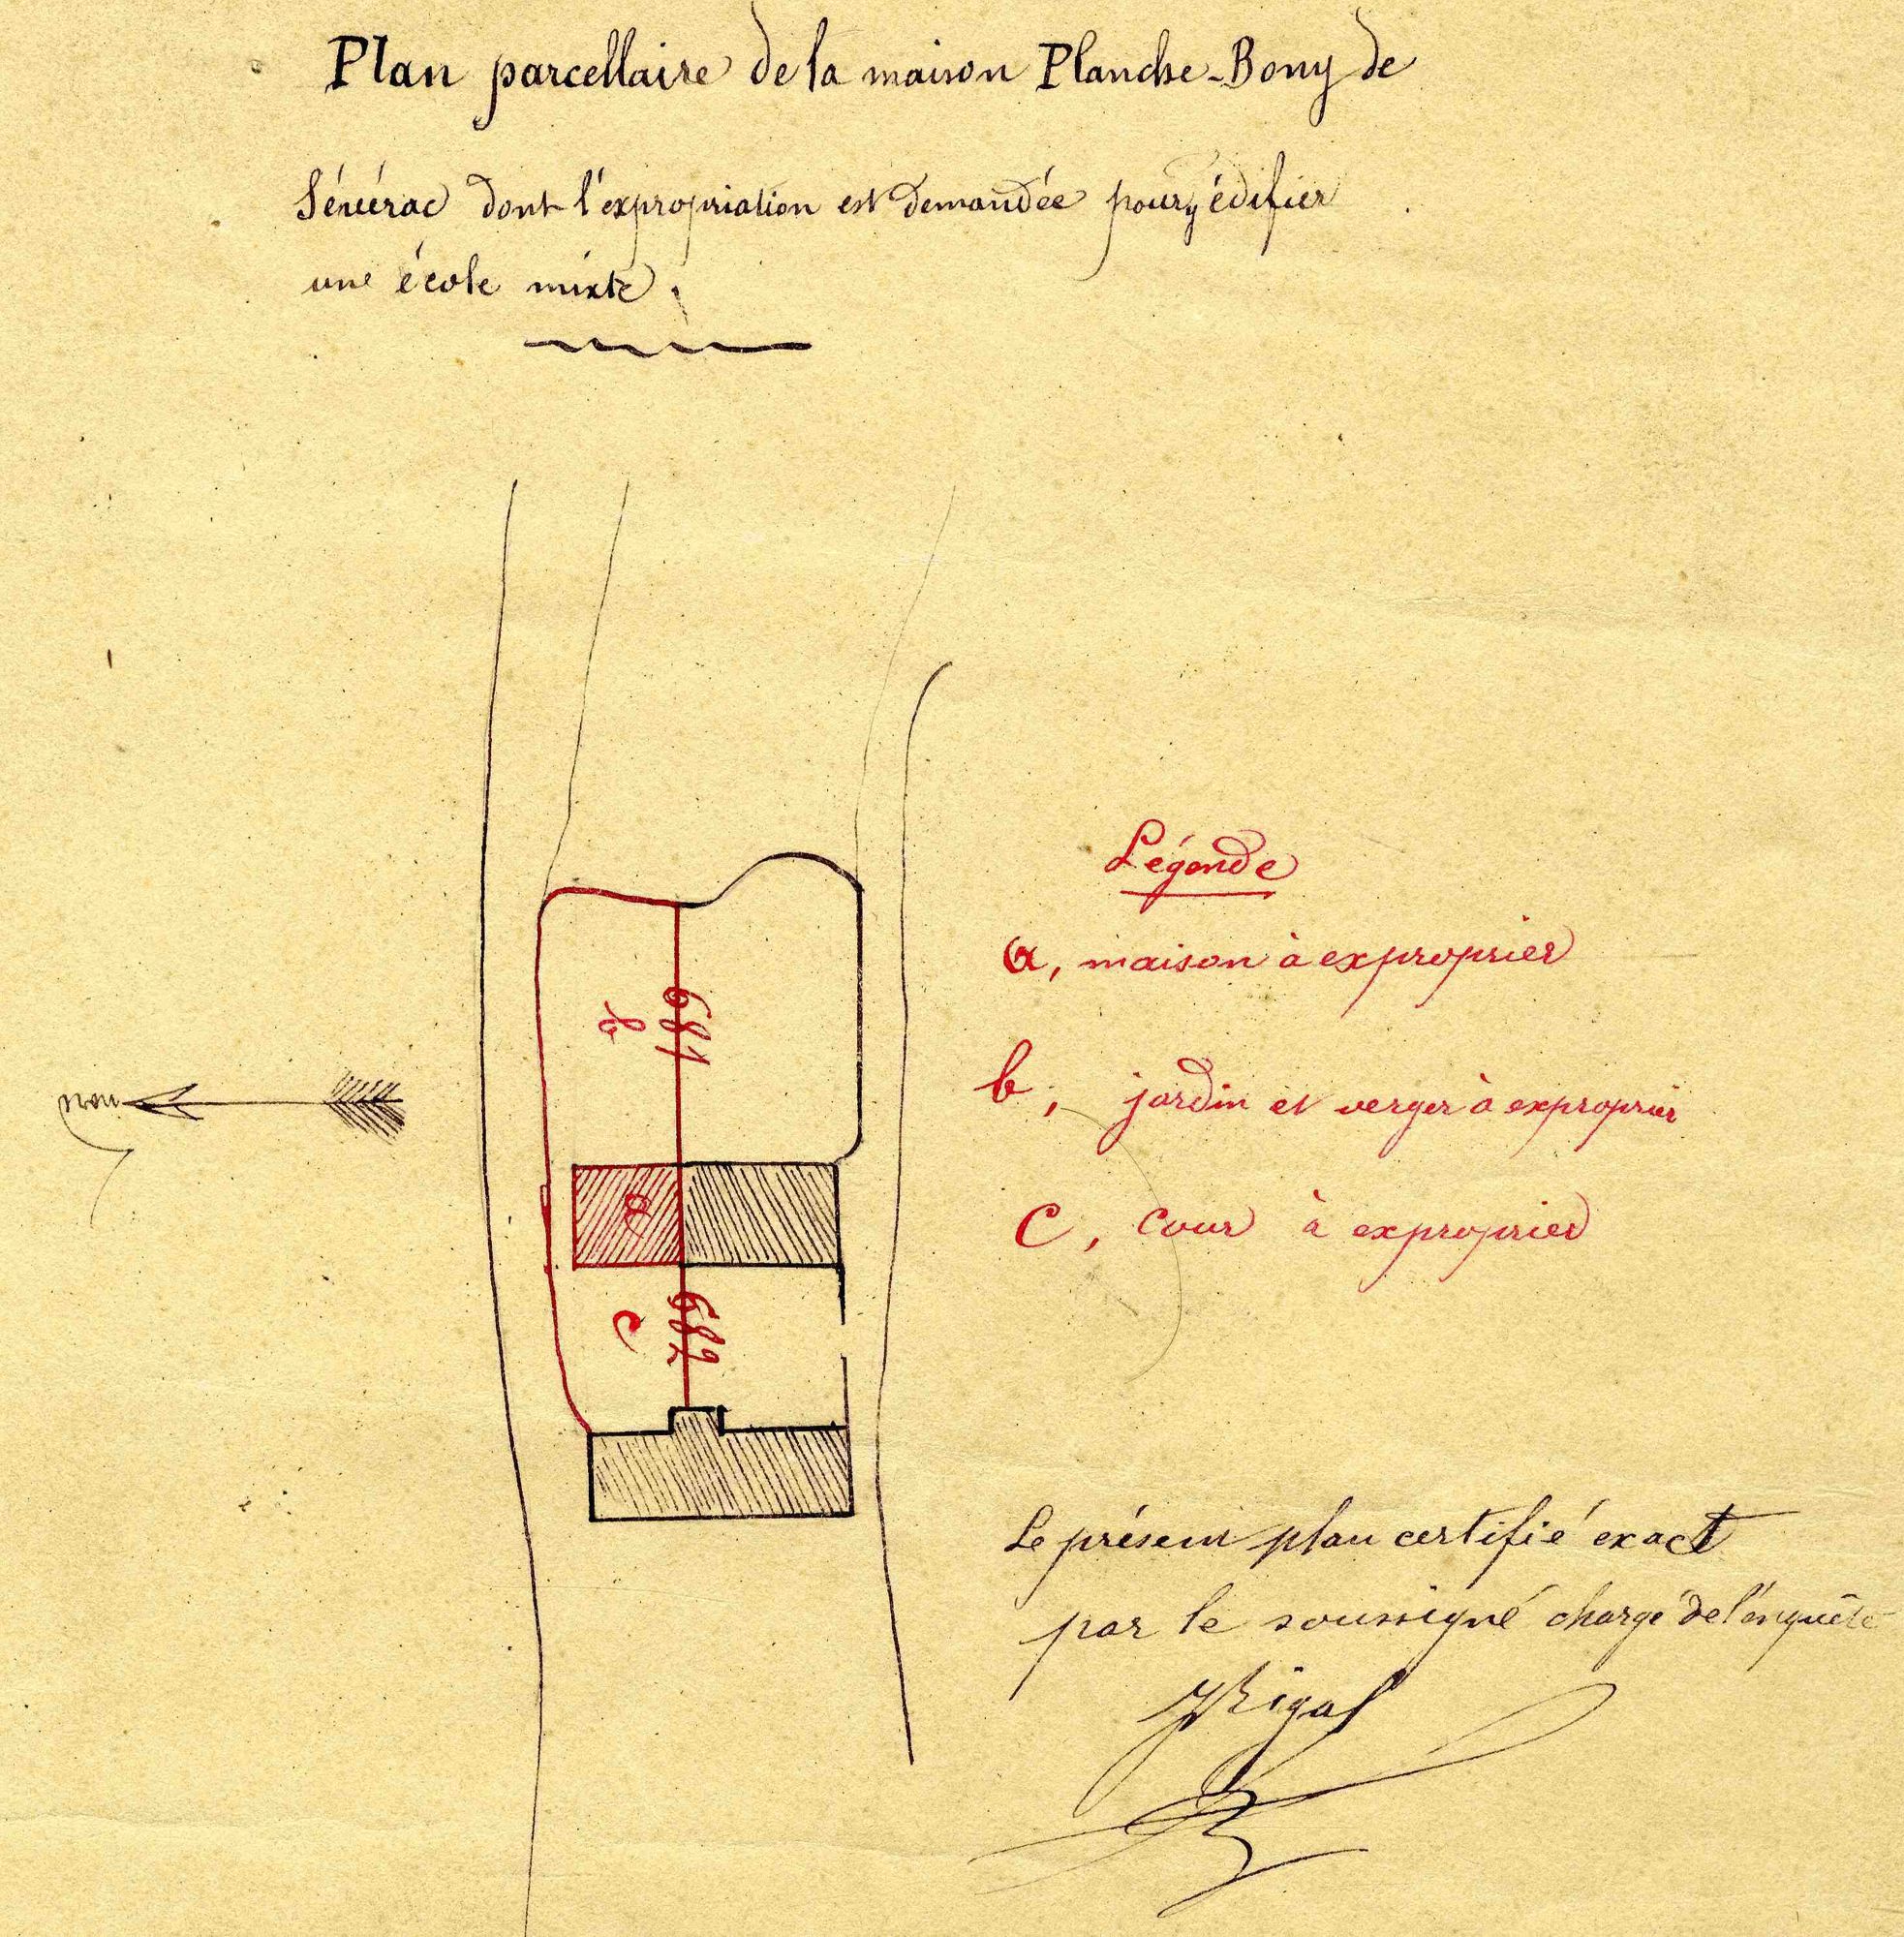 Plan parcellaire de la maison Planche-Bony de
Sénérac dont l'expropriation est demandée pour y édifier
une école mixte.
Légende
a, maison à exproprier
b, jardin et verger à exproprier
c, cour à exproprier
nord
681
b
a
682
c
Le présent plan certifié exact
par le soussigné chargé de l'enquête
JRigal